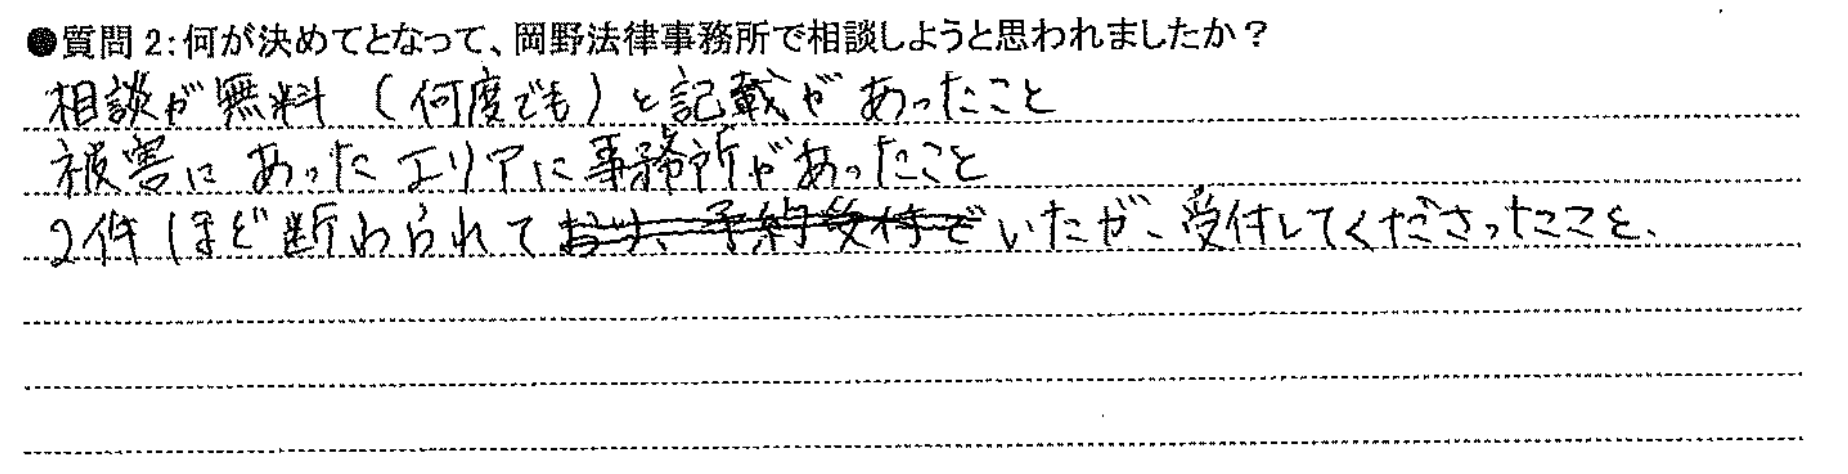 ●質問2:何が決めてとなって、岡野法律事務所で相談しようと思われましたか？
相談が無料（何度でも）と記載があったこと
被害にあったエリアに事務所があったこと
2件ほど断わられていたが、受付してくださったことを、